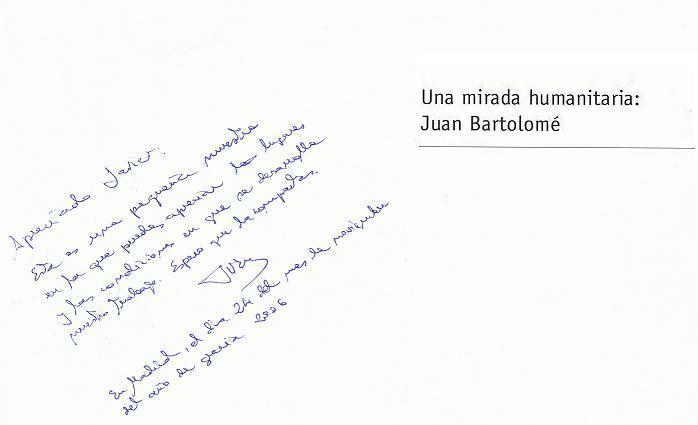 Una mirada humanitaria:
Juan Bartolomé
Apreciado Javier.
Esta es una pequeña muestra
en la que puedes apreciar los lugares
y las condiciones en que se desarrolla
nuestro trabajo. Espero que la compartas.
Juan
En Madrid, el día 24 del mes de noviembre
del año de gracia 2006